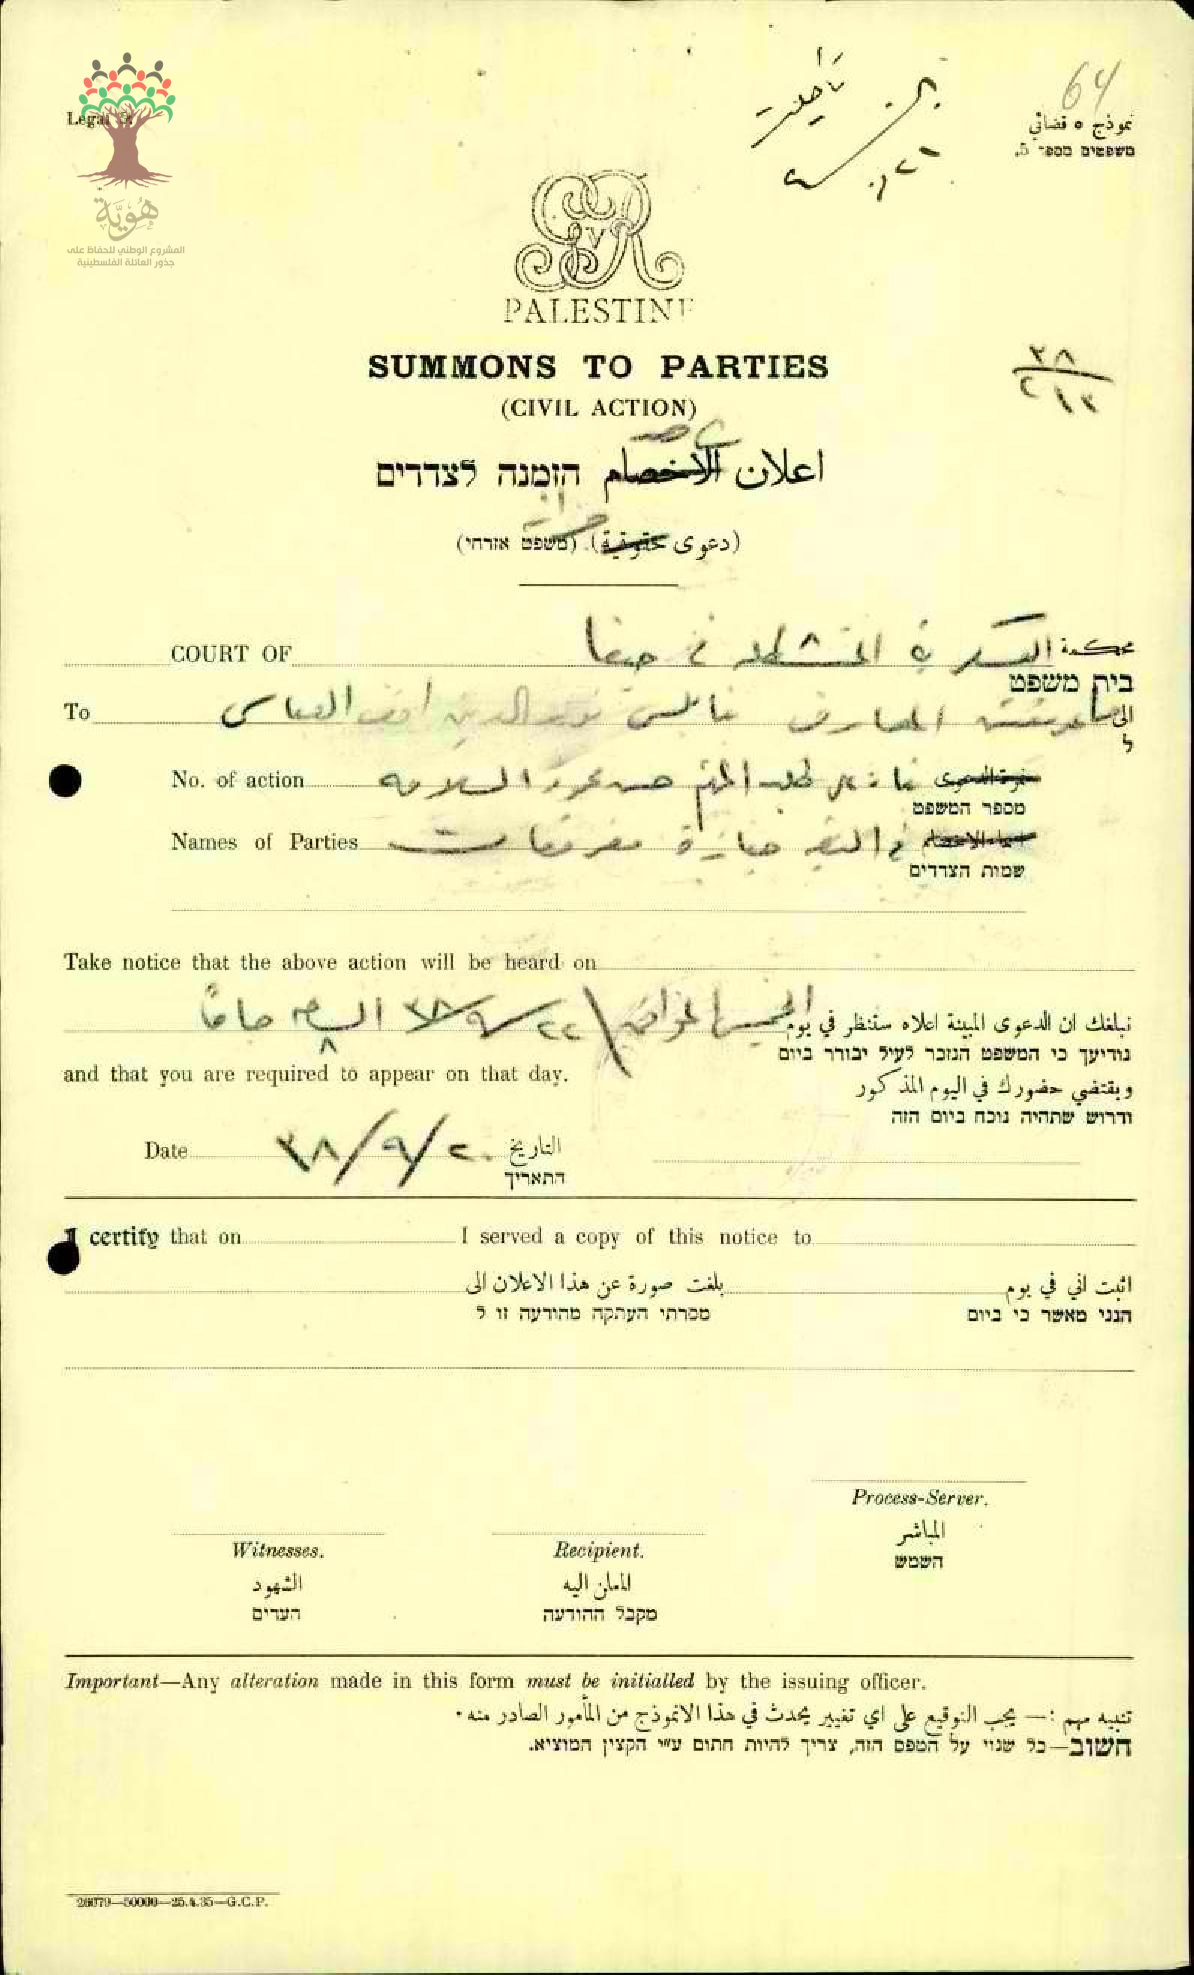 64
Legal
نموذج ٥ قضائي
משפטים מספר 5.
هُوِيَّة
المشروع الوطني للحفاظ على
جذور العائلة الفلسطينية
GRV
PALESTINE
SUMMONS TO PARTIES
(CIVIL ACTION)
٣٨
٢١٣
اعلان الاخصام הזמנה לצדדים
(دعوى حقوقية). (משפט אזרחי)
COURT OF العسكرية في حيفا محكمة
בית משפט
To المعارف نابلس نور الدين العباسي الى
ל
No. of action طلب المتهم حسن محمود السلامه نمرة الدعوى
מספר המשפט
Names of Parties حيازة مفرقعات اسماء الاخصام
שמות הצדדים
Take notice that the above action will be heard on
نبلغك ان الدعوى المبينة اعلاه ستنظر في يوم الخميس الموافق ٢٢/٩/٣٨ الساعه ٨ صباحاً
נודיעך כי המשפט הנזכר לעיל יבורר ביום
and that you are required to appear on that day.
ويقتضي حضورك في اليوم المذكور
ודרוש שתהיה נוכח ביום הזה
Date ٢٠/٩/٣٨ التاريخ
התאריך
I certify that on I served a copy of this notice to
اثبت اني في يوم بلغت صورة عن هذا الاعلان الى
הנני מאשר כי ביום מסרתי העתקה מהודעה זו ל
Process-Server.
المباشر
השמש
Witnesses. Recipient.
الشهود المعلن اليه
העדים מקבל ההודעה
Important—Any alteration made in this form must be initialled by the issuing officer.
تنبيه مهم :— يجب التوقيع على اي تغيير يحدث في هذا الانموذج من المأمور الصادر منه ·
חשוב—כל שנוי על הטפס הזה, צריך להיות חתום ע״י הקצין המוציא.
26079—50000—25.4.35—G.C.P.